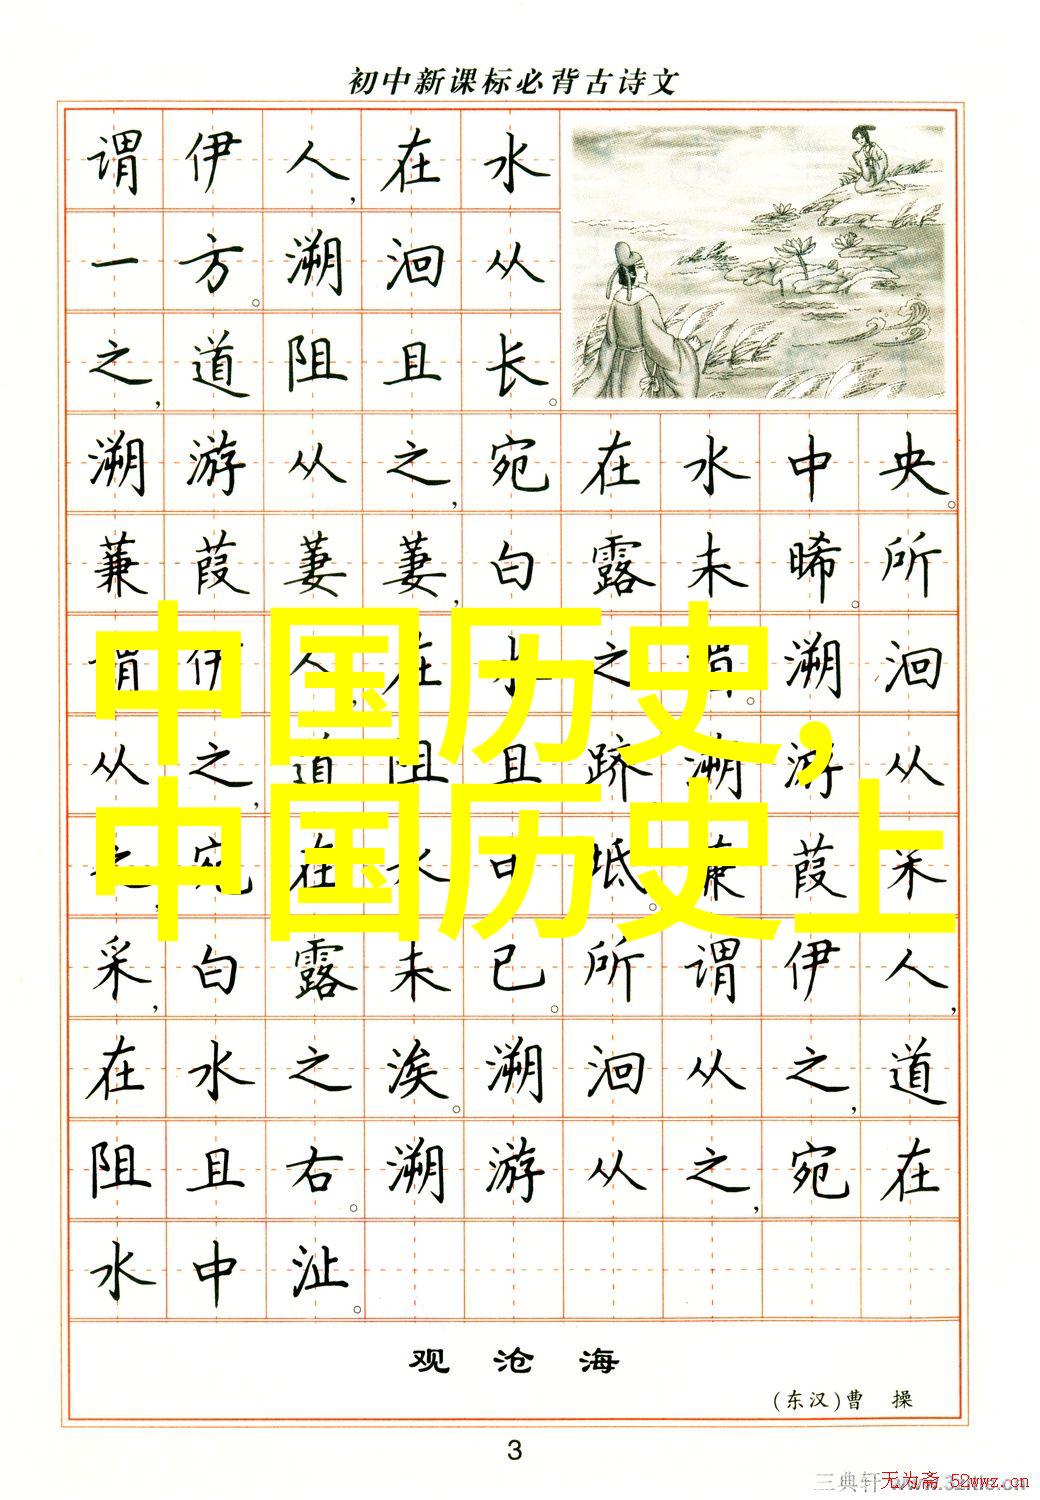 初中新课标必背古诗文
谓伊人，在水
一方。溯洄从
之，道阻且长。
溯游从之，宛在水中央。
蒹葭萋萋，白露未晞。所
谓伊人，在水之湄。溯洄
从之，道阻且跻。溯游从
之，宛在水中坻。蒹葭采
采，白露未已。所谓伊人，
在水之涘。溯洄从之，道
阻且右。溯游从之，宛在
水中沚。
中国历史，
中国历史上
观沧海
(东汉)曹操
3
三典轩
无为斋 52wwz.cn